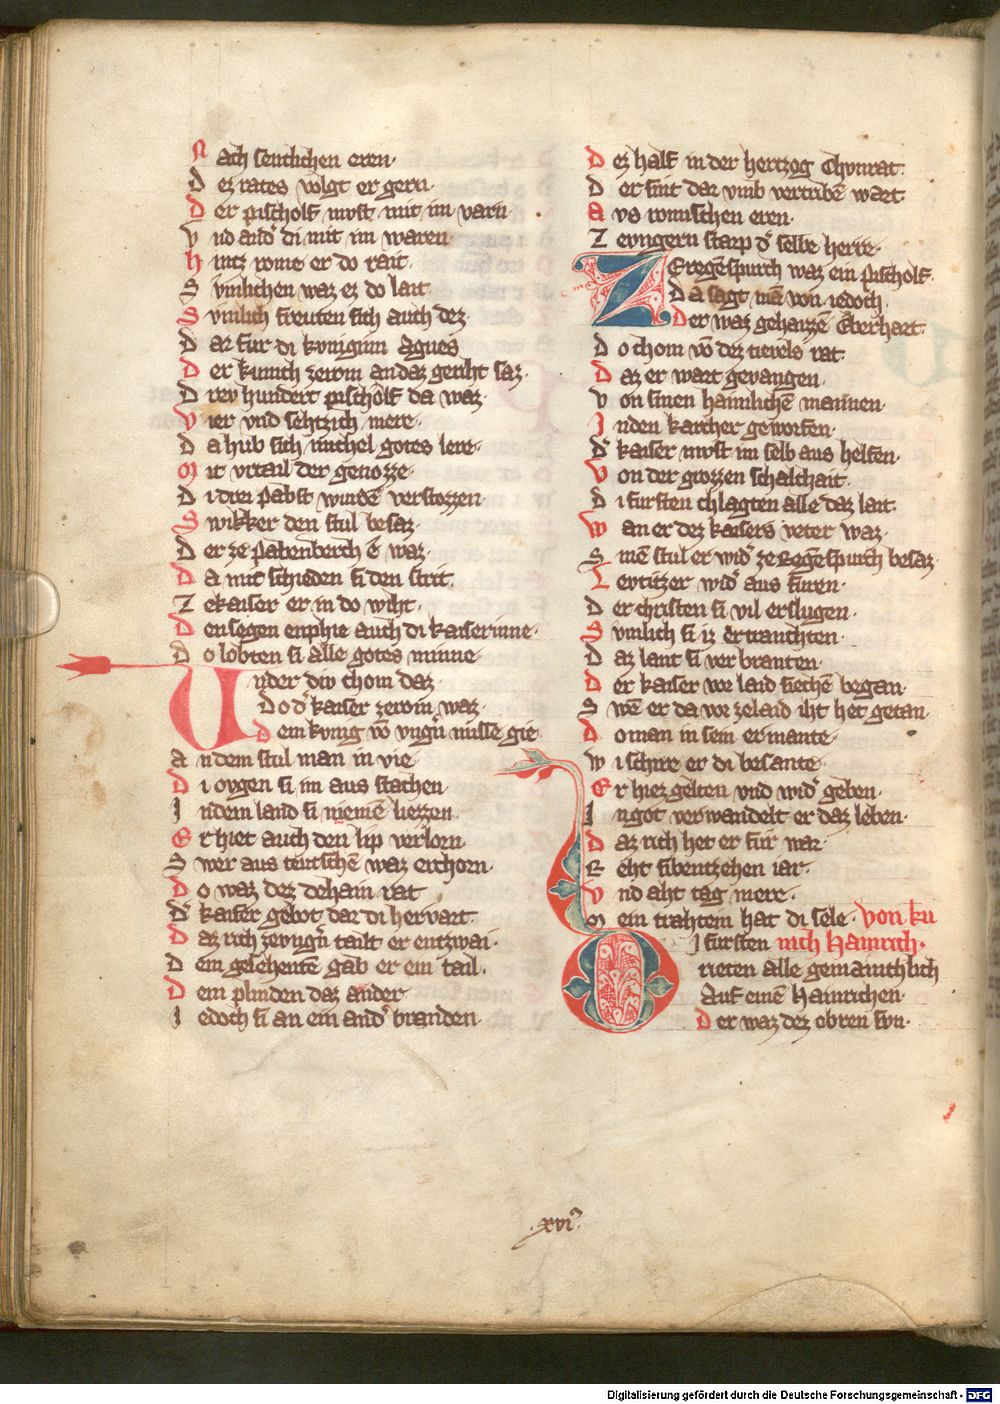 Nach sentlichen eren·
Dez rates volgt er gern·
Der pischolf must mit im varn·
Vnd and̾ di mit im waren·
Hintz rome er do rait·
Svmlichen waz ez do lait·
Svmlich freuten sich auch dez·
Dar fur di kvniginn Agnes
Der kunich zerom an daz geriht saz·
Drev hundert pischolf da waz·
Vier vnd sehtzich mere·
Da hub sich michel gotes lere·
Mit vrtail der genozze·
Di drei pabst wurdē verstozzen·
Swikker den stul besaz·
Der ze pabenberch ē waz·
Da mit schieden si den strit·
Zekaiser er in do wiht·
Den segen enphie auch di kaiserinne·
Do lobten si alle gotes minne·
Under div chom daz·
Do d̾ kaiser zerom waz·
Dem kvnig vō vngn̾ misse gie
An dem stul man in vie
Di ovgen si im aus stachen·
In dem land si niemē liezzen·
Er hiet auch den lip verlorn·
Swer aus teutschē waz erchorn·
Do waz dez dehain rat
D̾ kaiser gebot dar di hervart·
Daz rich zevngn̾ tailt er entzwai·
Dem gesehentē gab er ein tail·
Dem plinden daz ander·
Iedoch si an ein and̾ branden·
Dez half in der hertzog Chvnrat·
Der sint dar vmb vertribē wart
Avs romischen eren·
Zevngern starp d̾ selbe herre·
Ze regēspurch waz ein pischolf·
Da sagt mā von iedoch·
Der waz gehaizzē Eberhart·
Do chom vō dez tievels rat·
Daz er wart gevangen·
Von sinen haimlichē mannen·
In den karcher geworfen·
D̾ kaiser must im selb aus helfen·
Von der grozzen schalchait·
Di fursten chlagten alle daz lait·
Wan er dez kaisers veter waz·
Sinē stul er wid̾ ze Regēspurch besaz·
Levtitzer wid̾ aus furen·
Der christen si vil erslugen·
Svmlich si iz ertranchten·
Daz lant si verbranten·
Der kaiser vor land siechē began·
Swē er da vor ze laid iht het getan·
Do man in sein ermante·
Wi schire er di besante·
Er hiez gelten vnd wid̾ geben·
In got verwandelt er daz leben·
Daz rich het er fur war·
Reht sibentzehen iar·
Vnd aht tag mere·
Mein trahtein hat di sele· von ku
Di fursten nich Hainrich·
rieten alle gemainchlich
Auf einē Hainrichen·
Der waz dez obren svn·
·xvi·
Digitalisierung gefördert durch die Deutsche Forschungsgemeinschaft - DFG